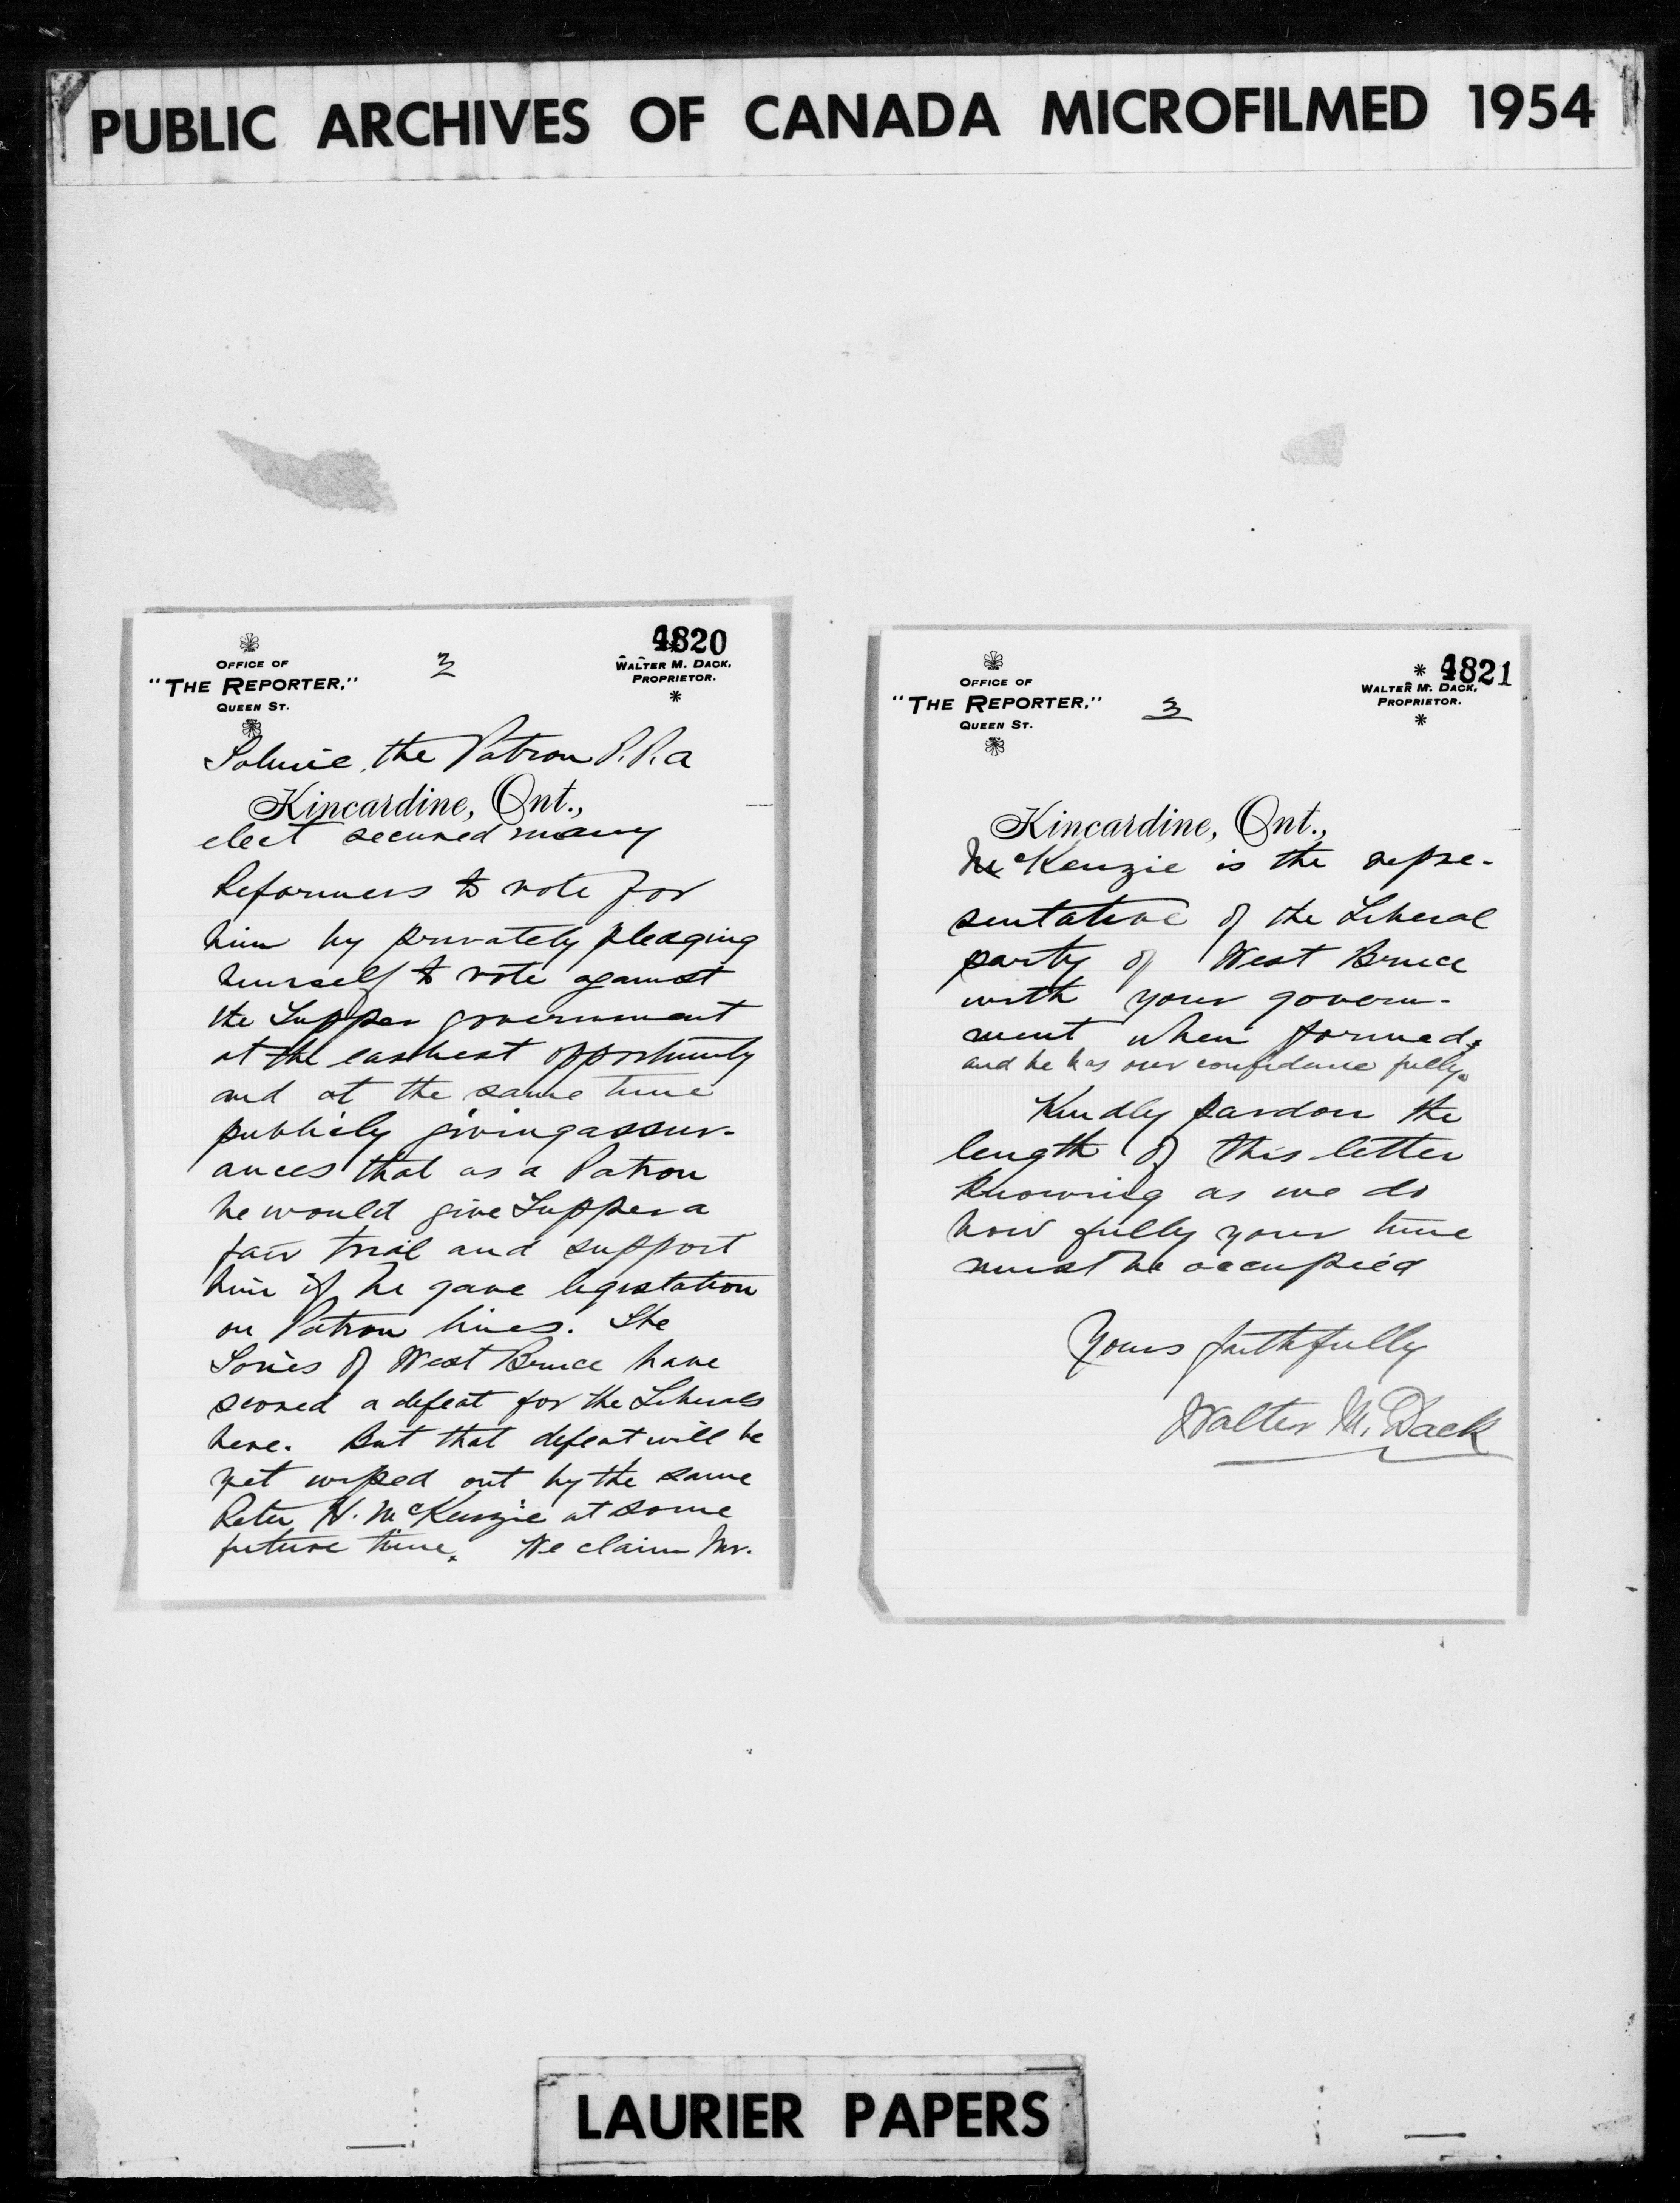 PUBLIC ARCHIVES OF CANADA MICROFILMED 1954
4820
OFFICE OF
"THE REPORTER,"
QUEEN ST.
3
WALTER M. DACK,
PROPRIETOR.
Tolmie, the Patron P.P.a
Kincardine, Ont.,
elect secured many
Reformers to vote for
him by privately pledging
himself to vote against
the Tupper government
at the earliest opportunity
and at the same time
publicly giving assur-
ances that as a Patron
he would give Tupper a
fair trial and support
him if he gave legistation
on Patron lines. The
Tories of West Bruce have
scored a defeat for the Liberals
here. But that defeat will be
yet wiped out by the same
Peter H. McKenzie at some
future time. We claim Mr.
4821
OFFICE OF
"THE REPORTER,"
QUEEN ST.
3
WALTER M. DACK,
PROPRIETOR.
Kincardine, Ont.,
McKenzie is the repre-
sentative of the Liberal
party of West Bruce
with your govern-
ment when formed,
and he has our confidence fully.
Kindly pardon the
length of this letter
knowing as we do
how fully your time
must be occupied
Yours faithfully
Walter M. Dack
LAURIER PAPERS